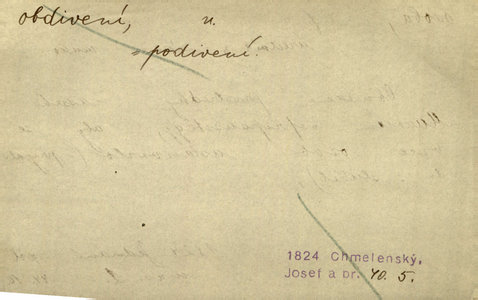 obdivení, n.
= podivení.
1824 Chmelenský,
Josef a br. 40. 5.